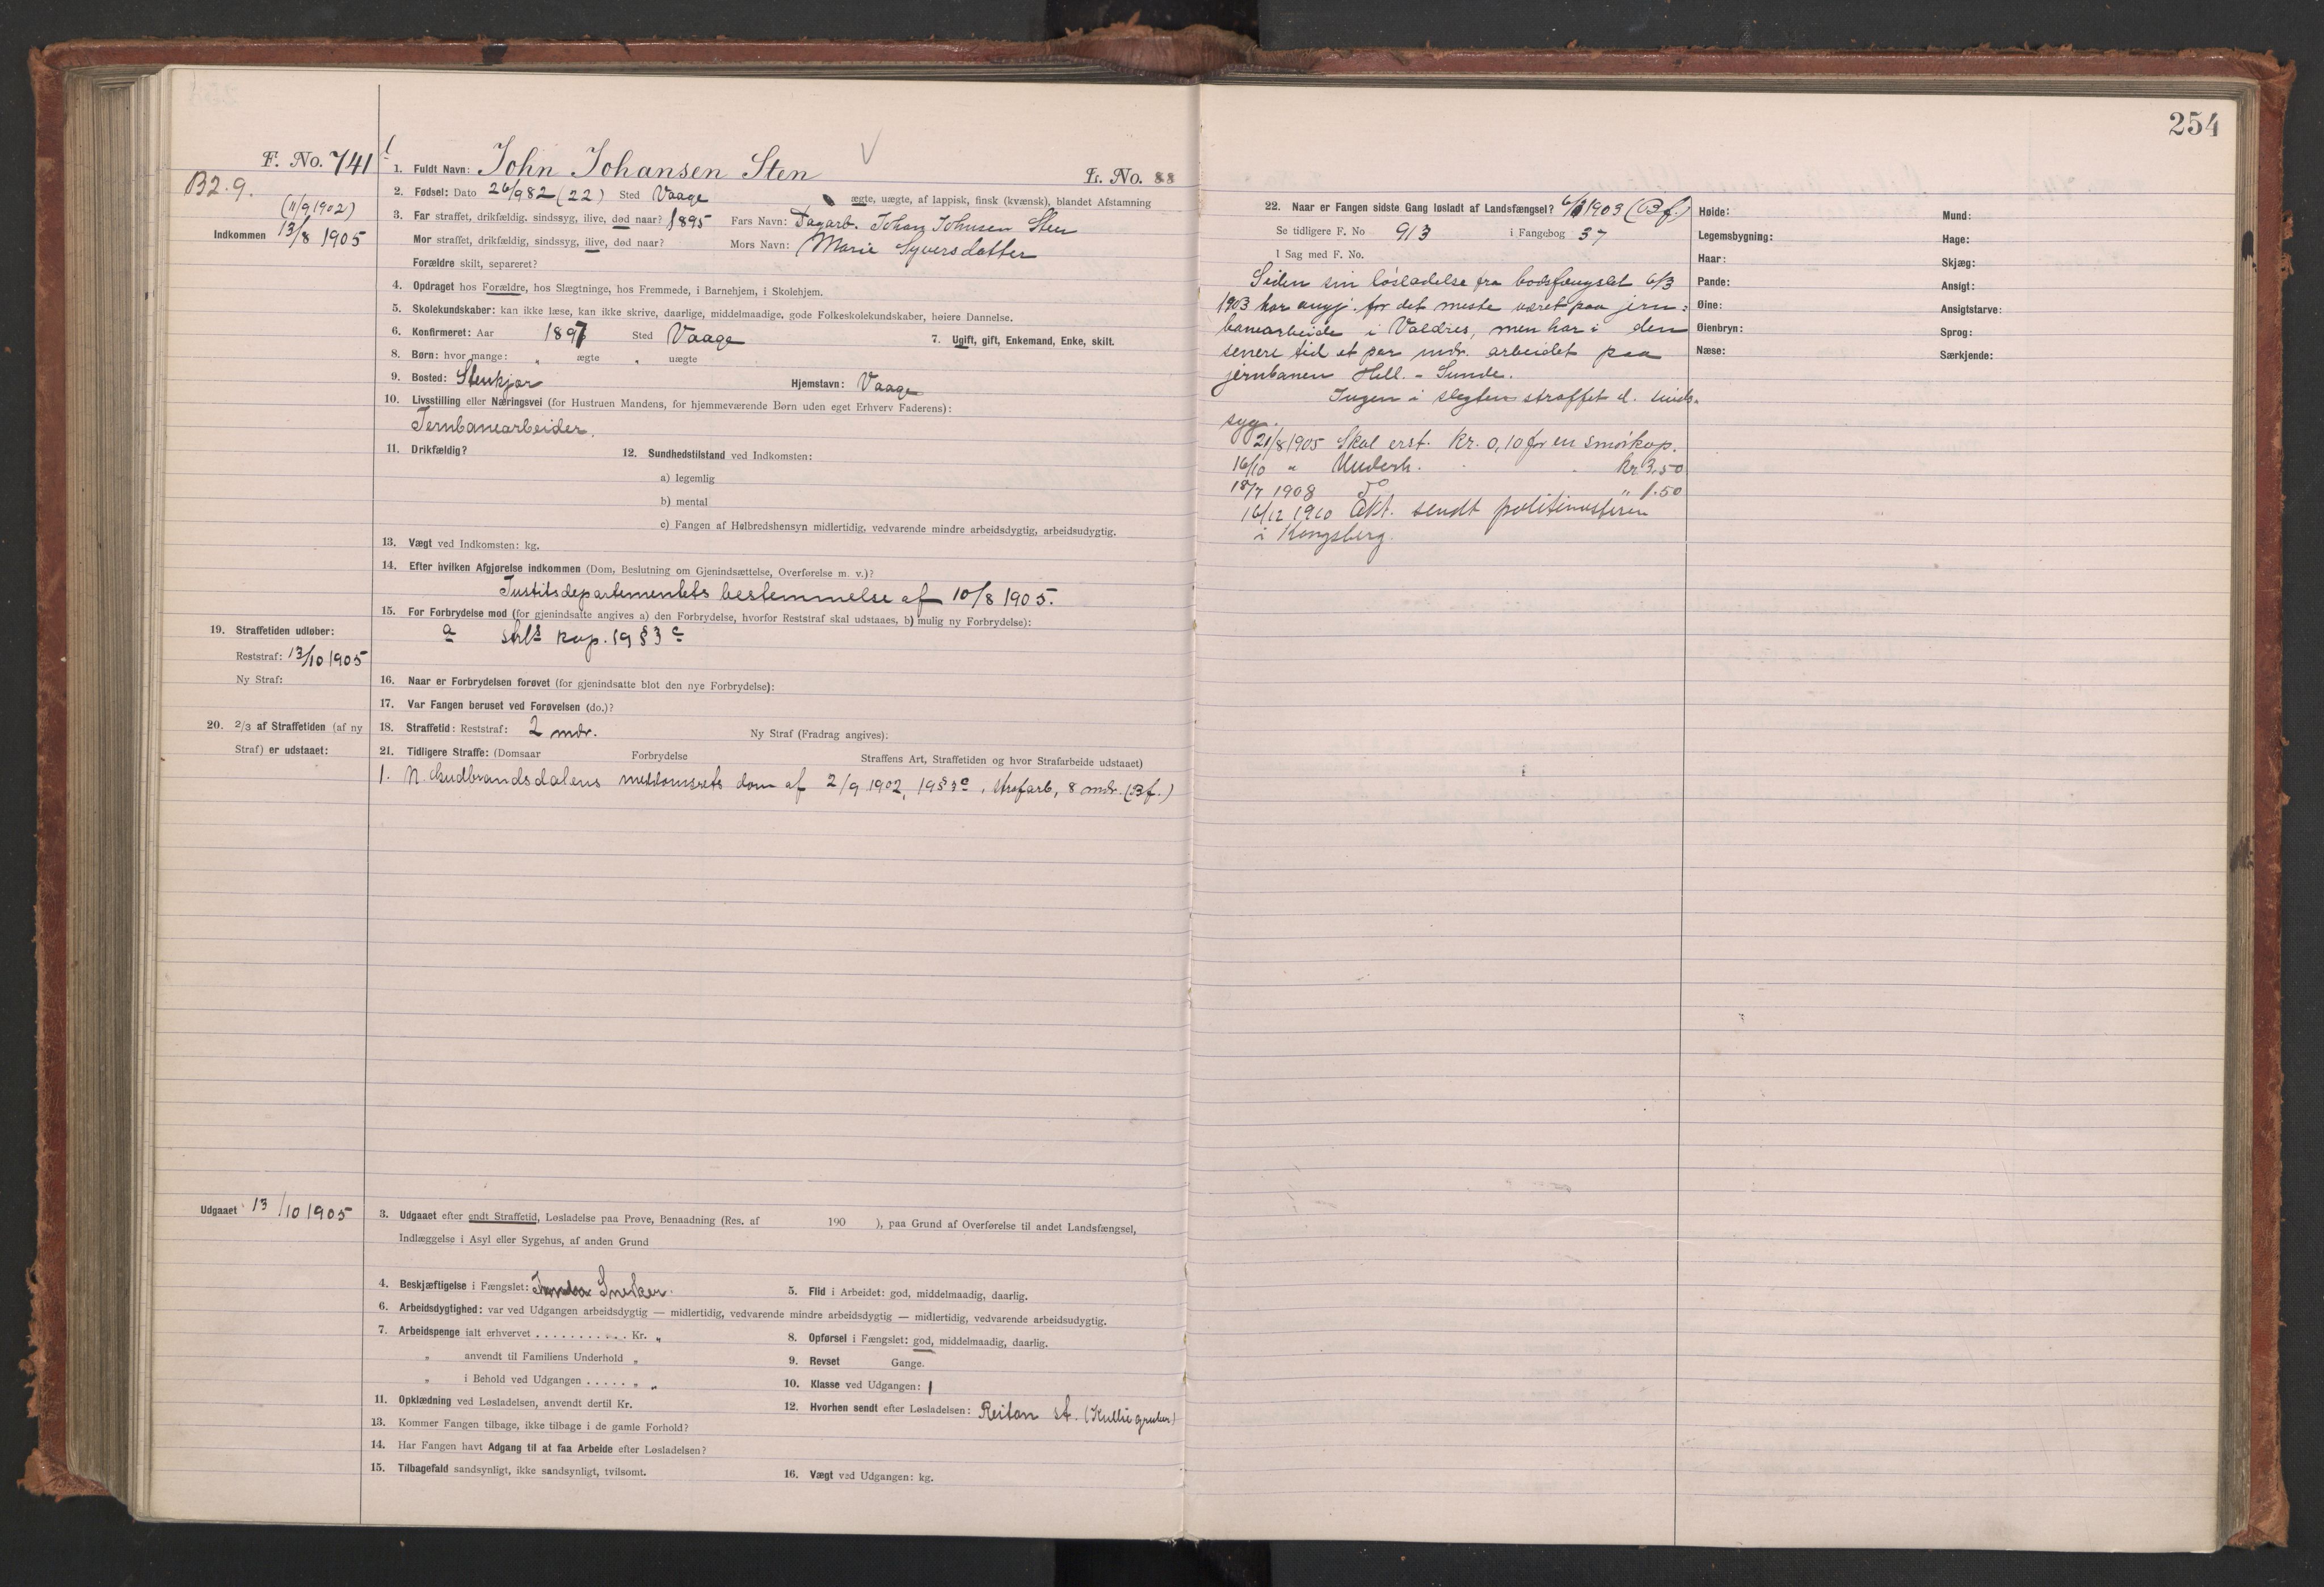 254
F. No. 741
B2.9.
(11/9 1902)
Indkommen 13/8 1905
1. Fuldt Navn: John Johansen Sten L. No. 88
2. Fødsel: Dato 26/9 82 (22) Sted Vaage ægte, uægte, af lappisk, finsk (kvænsk), blandet Afstamning
3. Far straffet, drikfældig, sindssyg, ilive, død naar? 1895 Fars Navn: Dagarb. Johan Johnsen Sten
Mor straffet, drikfældig, sindssyg, ilive, død naar? Mors Navn: Marie Syversdatter
Forældre skilt, separeret?
4. Opdraget hos Forældre, hos Slægtninge, hos Fremmede, i Barnehjem, i Skolehjem.
5. Skolekundskaber: kan ikke læse, kan ikke skrive, daarlige, middelmaadige, gode Folkeskolekundskaber, høiere Dannelse.
6. Konfirmeret: Aar 1897 Sted Vaage 7. Ugift, gift, Enkemand, Enke, skilt.
8. Børn: hvor mange: " ægte " uægte
9. Bosted: Stenkjær Hjemstavn: Vaage
10. Livsstilling eller Næringsvei (for Hustruen Mandens, for hjemmeværende Børn uden eget Erhverv Faderens):
Jernbanearbeider.
11. Drikfældig? 12. Sundhedstilstand ved Indkomsten:
a) legemlig
b) mental
c) Fangen af Helbredshensyn midlertidig, vedvarende mindre arbeidsdygtig, arbeidsudygtig.
13. Vægt ved Indkomsten: kg.
14. Efter hvilken Afgjørelse indkommen (Dom, Beslutning om Gjenindsættelse, Overførelse m. v.)?
Justitsdepartementets bestemmelse af 10/8 1905.
15. For Forbrydelse mod (for gjenindsatte angives a) den Forbrydelse, hvorfor Reststraf skal udstaaes, b) mulig ny Forbrydelse):
a strls kap. 19 § 3 c
19. Straffetiden udløber:
Reststraf: 13/10 1905
Ny Straf:
16. Naar er Forbrydelsen forøvet (for gjenindsatte blot den nye Forbrydelse):
17. Var Fangen beruset ved Forøvelsen (do.)?
20. 2/3 af Straffetiden (af ny
Straf) er udstaaet:
18. Straffetid: Reststraf: 2 mdr. Ny Straf (Fradrag angives):
21. Tidligere Straffe: (Domsaar Forbrydelse Straffens Art, Straffetiden og hvor Strafarbeide udstaaet)
1. N. Gudbrandsdalens meddomsrets dom af 2/9 1902, 19 § 3 c, strafarb, 8 mdr. (Bf.)
Udgaaet 13/10 1905
3. Udgaaet efter endt Straffetid, Løsladelse paa Prøve, Benaadning (Res. af 190 ), paa Grund af Overførelse til andet Landsfængsel,
Indlæggelse i Asyl eller Sygehus, af anden Grund
4. Beskjæftigelse i Fængslet: Snekker. 5. Flid i Arbeidet: god, middelmaadig, daarlig.
6. Arbeidsdygtighed: var ved Udgangen arbeidsdygtig — midlertidig, vedvarende mindre arbeidsdygtig — midlertidig, vedvarende arbeidsudygtig.
7. Arbeidspenge ialt erhvervet . . . . . . . . . . . Kr. " 8. Opførsel i Fængslet: god, middelmaadig, daarlig.
" anvendt til Familiens Underhold " 9. Revset Gange.
" i Behold ved Udgangen . . . . . " " 10. Klasse ved Udgangen: 1
11. Opklædning ved Løsladelsen, anvendt dertil Kr. 12. Hvorhen sendt efter Løsladelsen: Reitan st.
13. Kommer Fangen tilbage, ikke tilbage i de gamle Forhold?
14. Har Fangen havt Adgang til at faa Arbeide efter Løsladelsen?
15. Tilbagefald sandsynligt, ikke sandsynligt, tvilsomt. 16. Vægt ved Udgangen: kg.
22. Naar er Fangen sidste Gang løsladt af Landsfængsel? 6/3 1903 (Bf.)
Se tidligere F. No 913 i Fangebog 37
I Sag med F. No.
Siden sin løsladelse fra bodsfængslet 6/3
1903 har angj. for det meste været paa jern=
banearbeide i Valdres, men har i den
senere tid et par mdr. arbeidet paa
jernbanen Hell. - Sunde.
Ingen i slegten straffet el. sinds=
syg.
21/8 1905 Skal erst. Kr. 0,10 for en smørkop.
16/10 " Underh. kr 3.50
18/7 1908 Do " 1.50
16/12 1910 Akt. sendt politimesteren
i Kongsberg.
Høide:
Legemsbygning:
Haar:
Pande:
Øine:
Øienbryn:
Næse:
Mund:
Hage:
Skjæg:
Ansigt:
Ansigtstarve:
Sprog:
Særkjende: